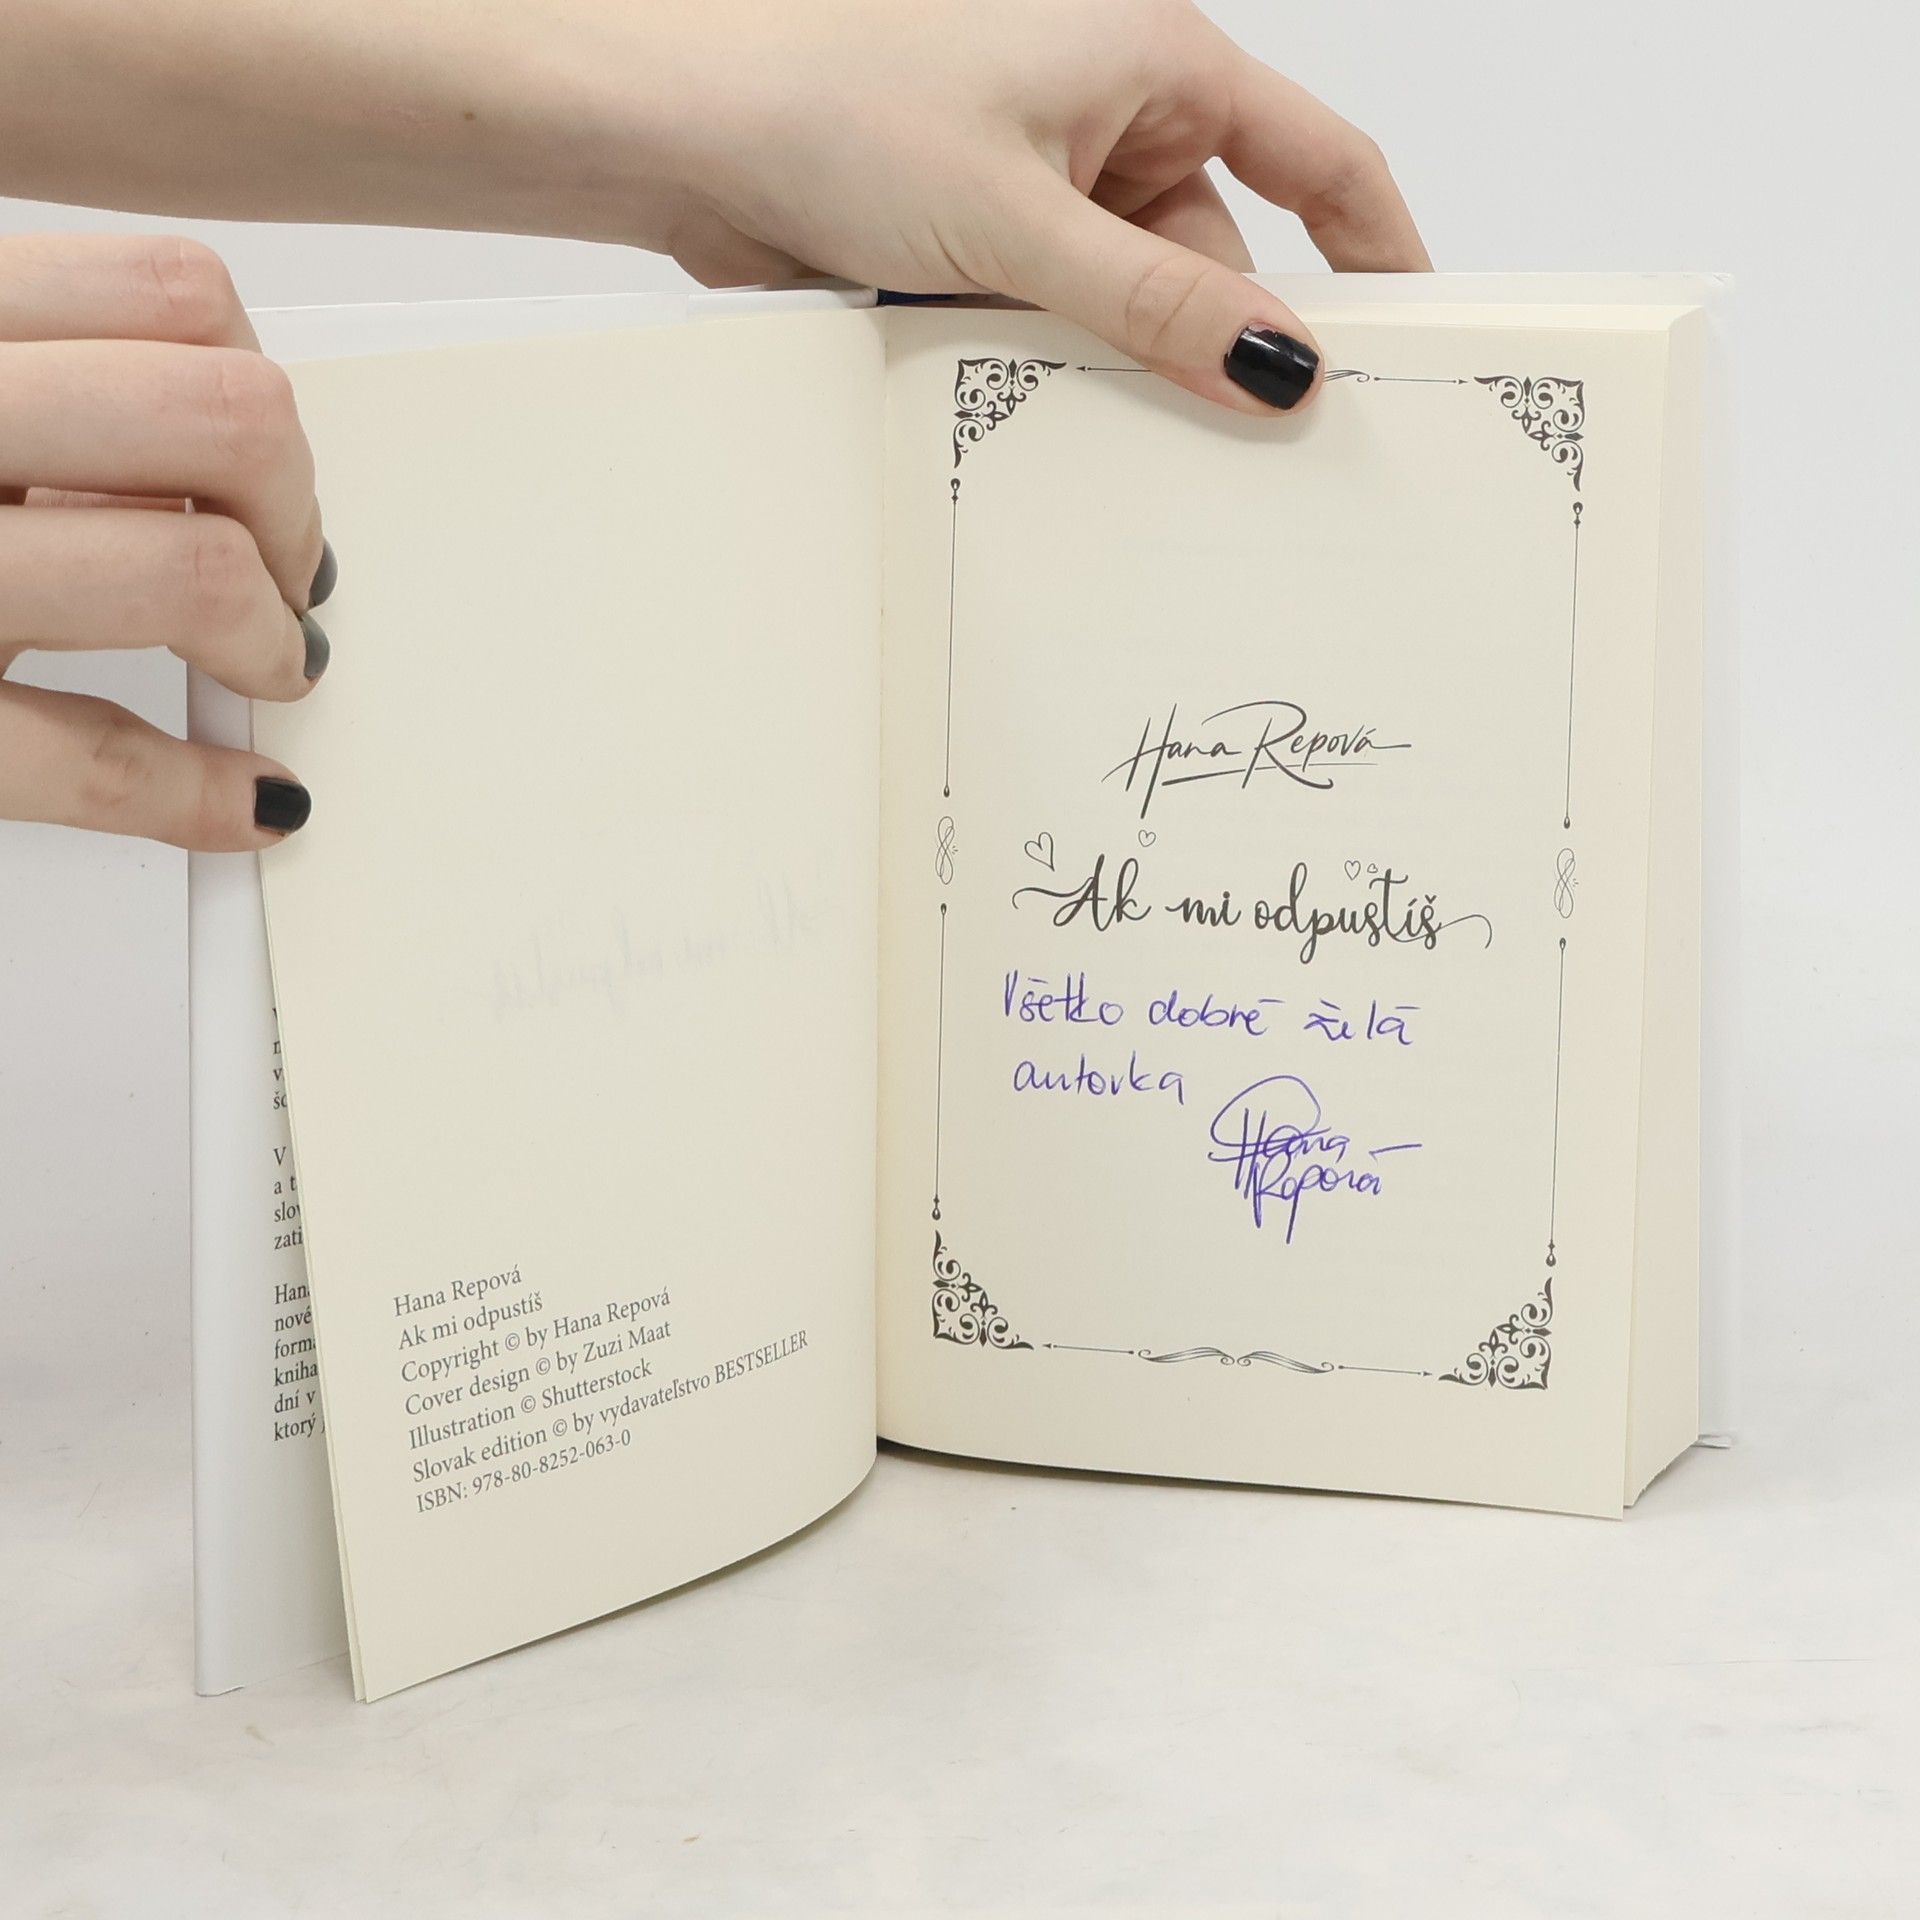 V
a t
Hana Repová
Ak mi odpustíš
Copyright © by Hana Repová
Cover design © by Zuzi Maat
Illustration © Shutterstock
Slovak edition © by vydavateľstvo BESTSELLER
ISBN: 978-80-8252-063-0
Hana Repová
Ak mi odpustíš
Všetko dobré želá
autorka
Hana
Repová